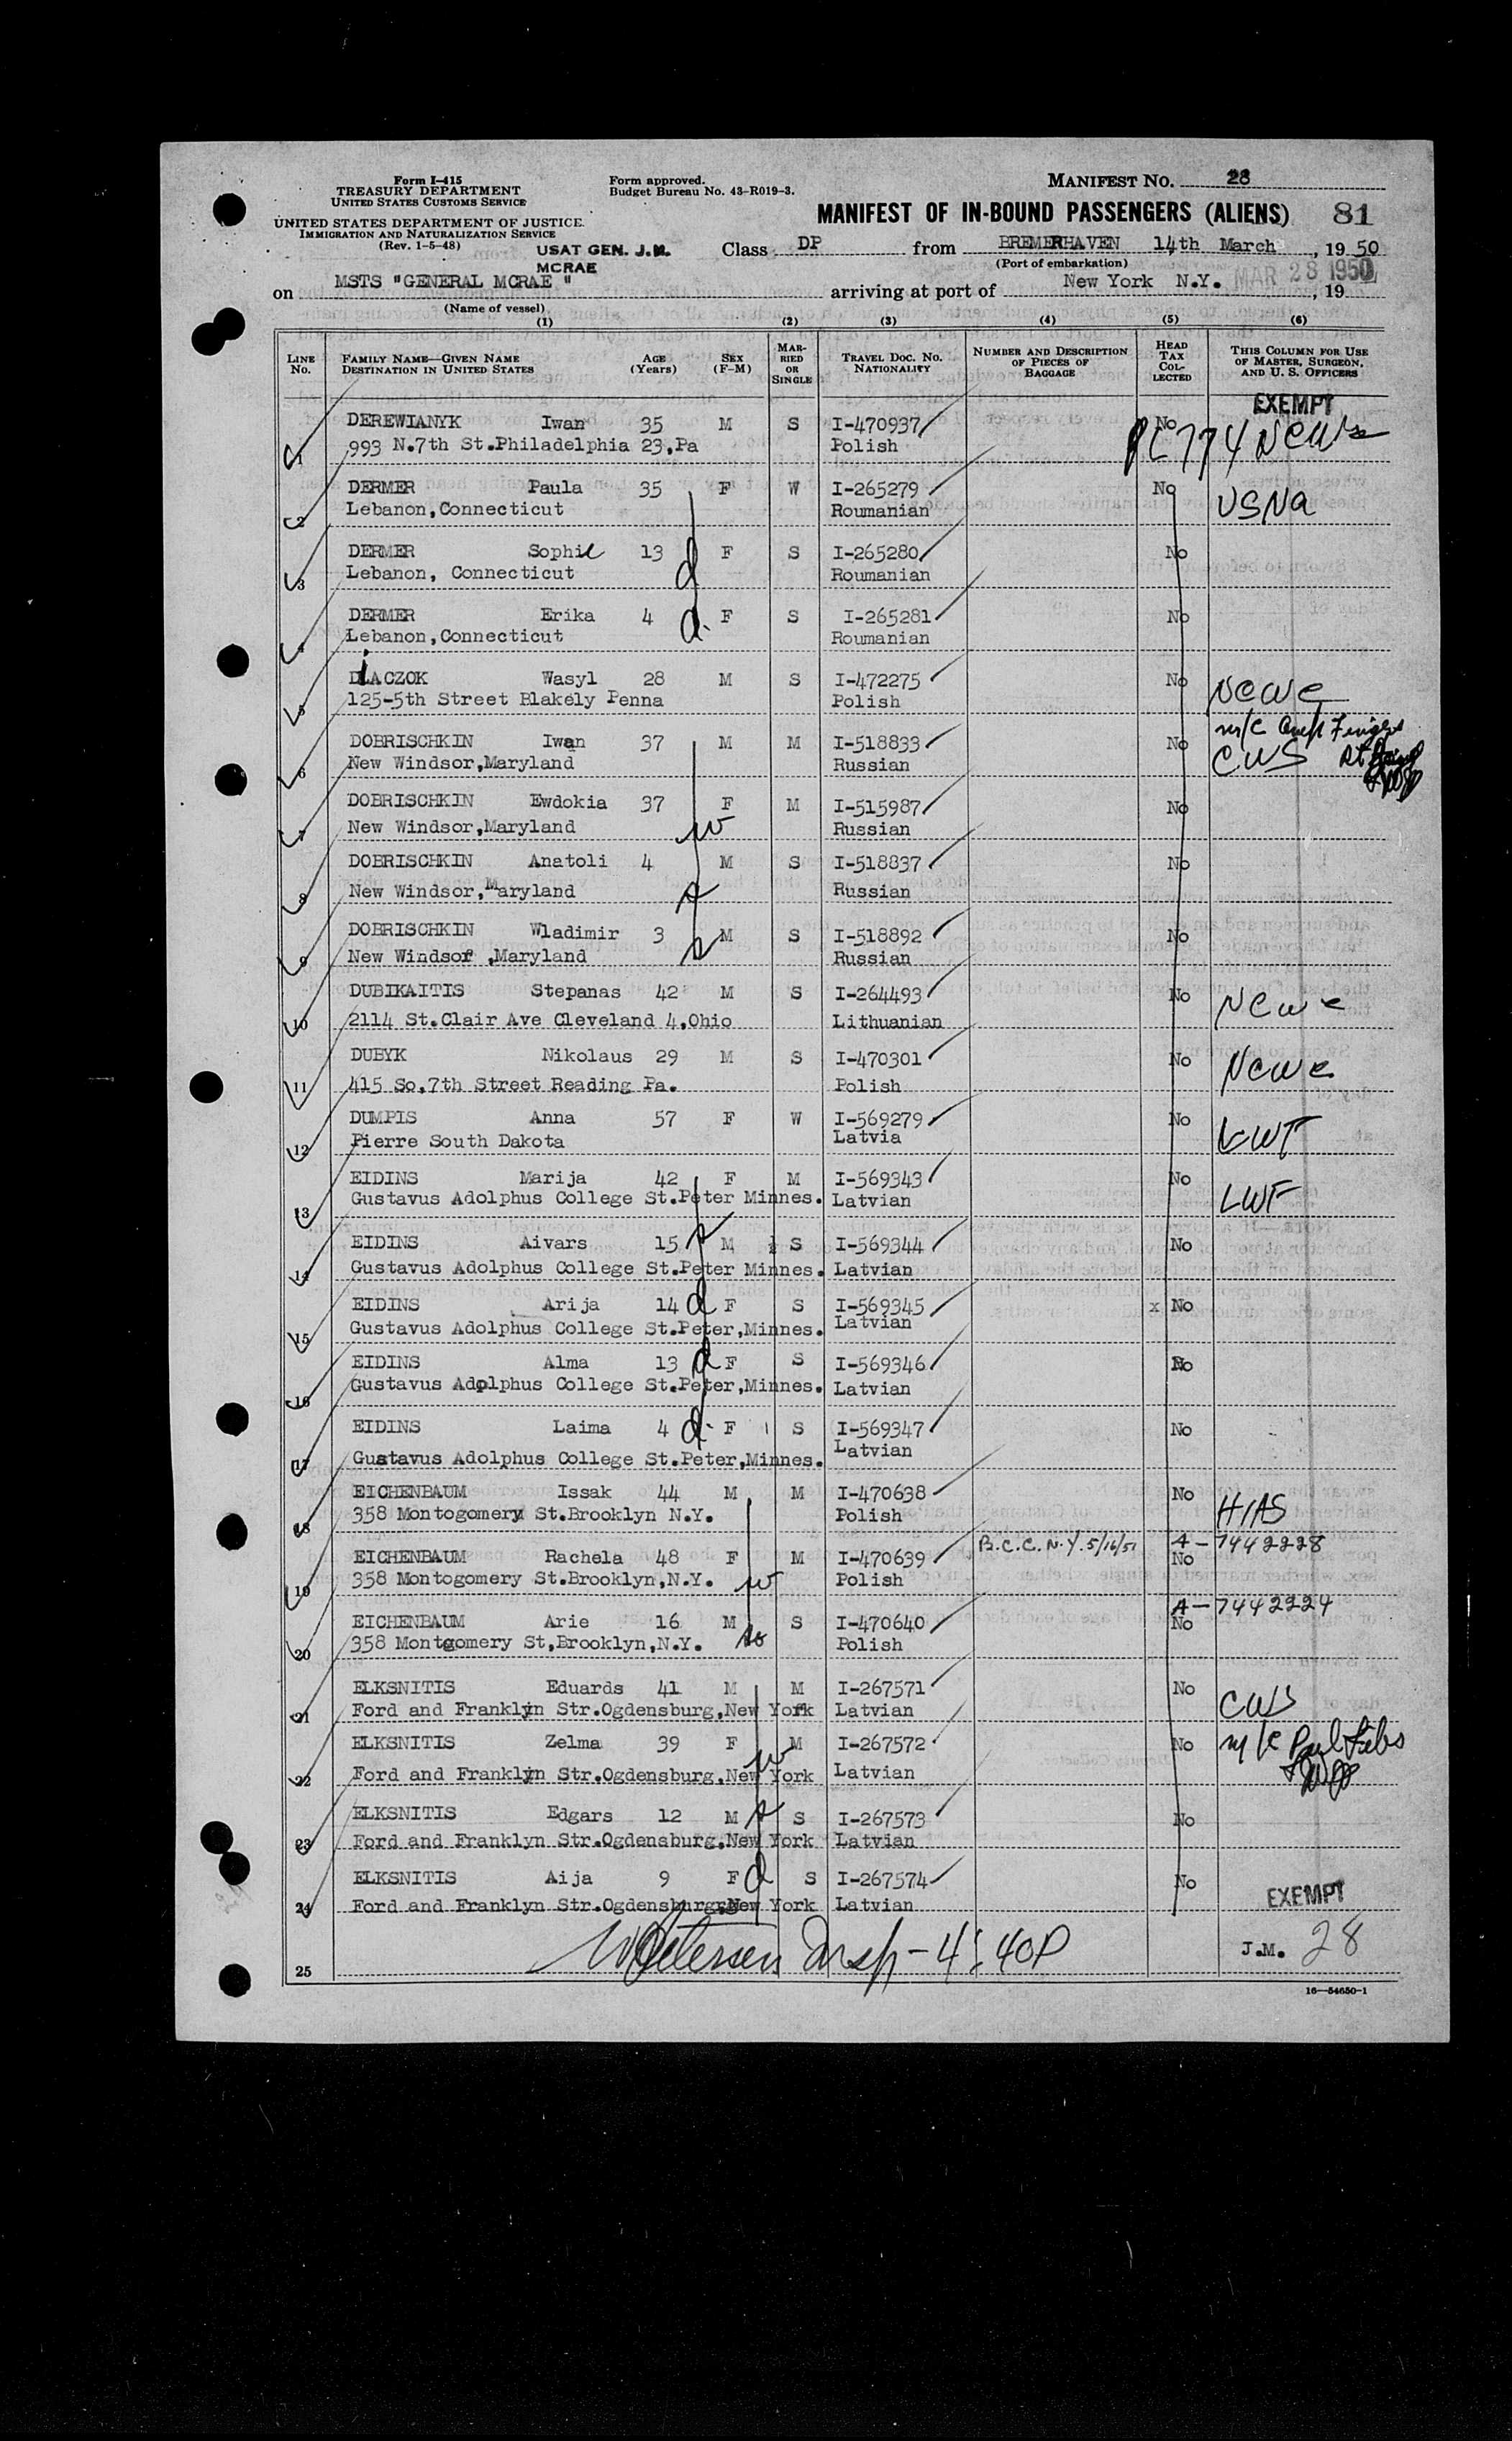 Form I-415
TREASURY DEPARTMENT
UNITED STATES CUSTOMS SERVICE
UNITED STATES DEPARTMENT OF JUSTICE
IMMIGRATION AND NATURALIZATION SERVICE
(Rev. 1-5-48)
Form approved.
Budget Bureau No. 43-R019-3.
MANIFEST NO. 28
MANIFEST OF IN-BOUND PASSENGERS (ALIENS) 81
USAT GEN. J.M. MCRAE
Class DP from BREMERHAVEN 14th March, 1950
(Port of embarkation)
on MSTS "GENERAL MCRAE" arriving at port of New York N.Y. MAR 28 1950, 19
(Name of vessel)
(1) (2) (3) (4) (5) (6)
LINE No. FAMILY NAME—GIVEN NAME DESTINATION IN UNITED STATES AGE (Years) SEX (F-M) MARRIED OR SINGLE TRAVEL DOC. NO. NATIONALITY NUMBER AND DESCRIPTION OF PIECES OF BAGGAGE HEAD TAX COLLECTED THIS COLUMN FOR USE OF MASTER, SURGEON, AND U. S. OFFICERS
EXEMPT
1 DEREWIANYK Iwan 35 M S I-470937 No
993 N.7th St.Philadelphia 23,Pa Polish
2 DERMER Paula 35 F W I-265279 No USNA
Lebanon,Connecticut Roumanian
3 DERMER Sophie 13 d F S I-265280 No
Lebanon, Connecticut Roumanian
4 DERMER Erika 4 d. F S I-265281 No
Lebanon,Connecticut Roumanian
5 DiACZOK Wasyl 28 M S I-472275 No NCWC
125-5th Street Blakely Penna Polish
6 DOBRISCHKIN Iwan 37 M M I-518833 No CWS
New Windsor,Maryland Russian
7 DOBRISCHKIN Ewdokia 37 F M I-515987 No
New Windsor,Maryland w Russian
8 DOBRISCHKIN Anatoli 4 M S I-518837 No
New Windsor,Maryland s Russian
9 DOBRISCHKIN Wladimir 3 s M S I-518892 No
New Windsor ,Maryland Russian
10 DUBIKAITIS Stepanas 42 M S I-264493 No NCWC
2114 St.Clair Ave Cleveland 4,Ohio Lithuanian
11 DUBYK Nikolaus 29 M S I-470301 No NCWC
415 So.7th Street Reading Pa. Polish
12 DUMPIS Anna 57 F W I-569279 No LWF
Pierre South Dakota Latvia
13 EIDINS Marija 42 F M I-569343 No LWF
Gustavus Adolphus College St.Peter Minnes. Latvian
14 EIDINS Aivars 15 s M S I-569344 No
Gustavus Adolphus College St.Peter Minnes. Latvian
15 EIDINS Arija 14 d F S I-569345 x No
Gustavus Adolphus College St.Peter,Minnes. Latvian
16 EIDINS Alma 13 d F S I-569346 No
Gustavus Adolphus College St.Peter,Minnes. Latvian
17 EIDINS Laima 4 d. F S I-569347 No
Gustavus Adolphus College St.Peter,Minnes. Latvian
18 EICHENBAUM Issak 44 M M I-470638 No HIAS
358 Montogomery St.Brooklyn N.Y. Polish
19 EICHENBAUM Rachela 48 F M I-470639 B.C.C. N.Y. 5/16/51 No A-7442228
358 Montogomery St.Brooklyn,N.Y. w Polish
20 EICHENBAUM Arie 16 M S I-470640 No A-7442224
358 Montgomery St,Brooklyn,N.Y. Polish
21 ELKSNITIS Eduards 41 M M I-267571 No CWS
Ford and Franklyn Str.Ogdensburg,New York Latvian
22 ELKSNITIS Zelma 39 F w M I-267572 No
Ford and Franklyn Str.Ogdensburg,New York Latvian
23 ELKSNITIS Edgars 12 M s S I-267573 No
Ford and Franklyn Str.Ogdensburg,New York Latvian
24 ELKSNITIS Aija 9 F d S I-267574 No
Ford and Franklyn Str.Ogdensburg,New York Latvian
EXEMPT
25 Petersen Insp - 4:40P J.M. 28
16—54650-1